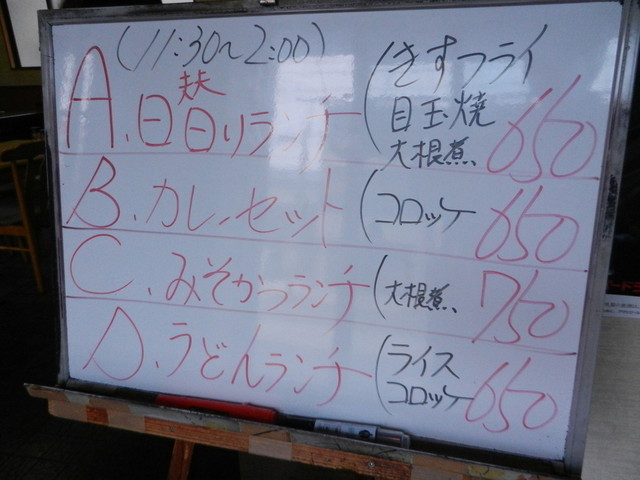 (11:30～2:00)
A、日替りランチ (きすフライ 目玉焼 大根煮、 650
B、カレーセット (コロッケ 650
C、みそかつランチ (大根煮、 750
D、うどんランチ (ライス コロッケ 650